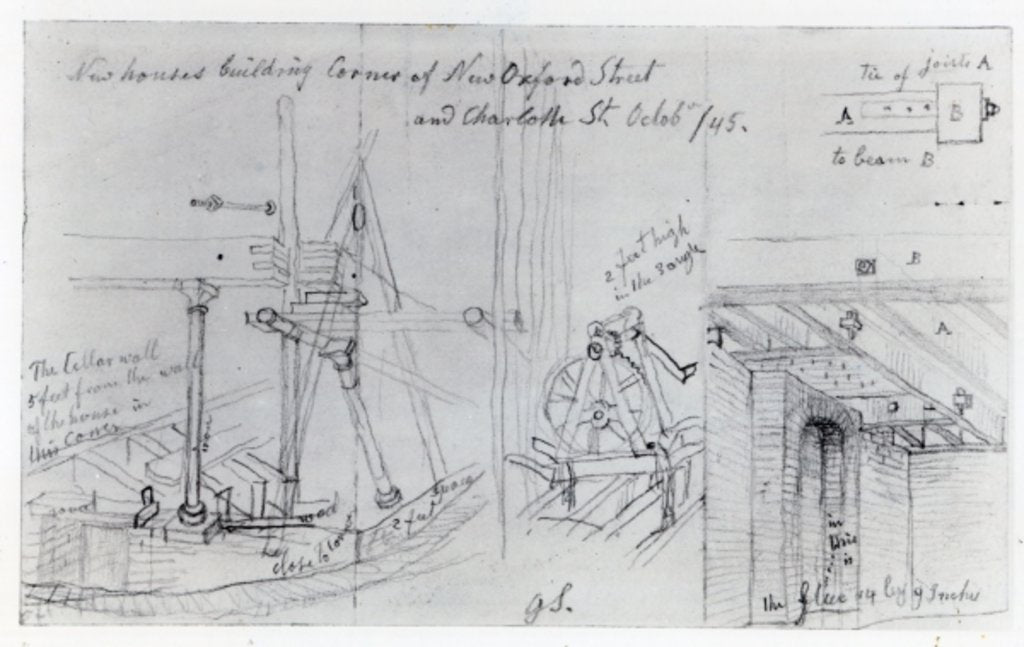 New houses building Corner of New Oxford Street
and Charlotte St. Octobr /45.
Tie of joists A
A
B
to beam B
B
A
2 feet high
in the 3 angle
The Cellar wall
5 feet from the wall
of the house in
this corner
iron
wood
close to corner
2 feet space
in
is
the flue 14 by 9 Inches
GS.